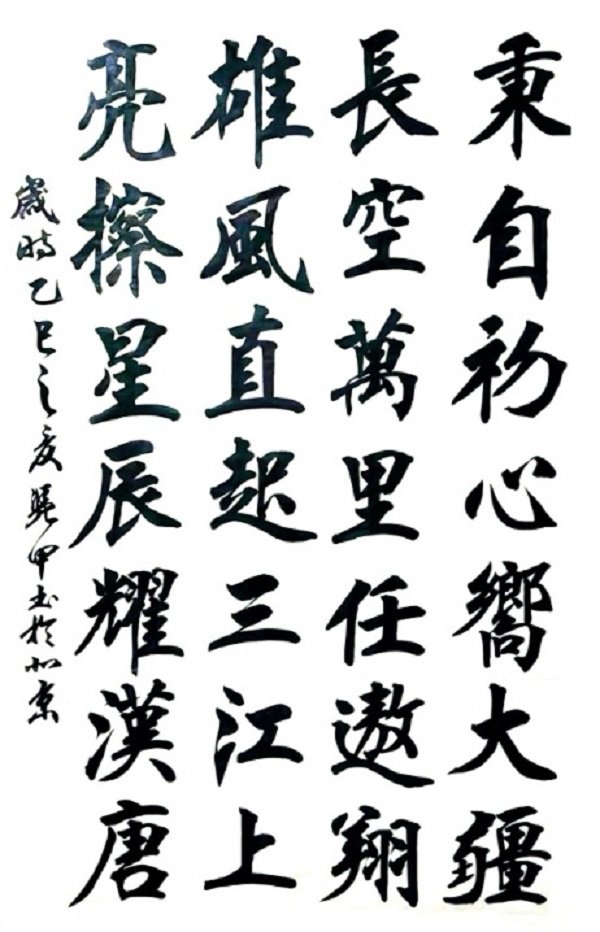 秉自初心嚮大疆
長空萬里任遨翔
雄風直起三江上
亮擦星辰耀漢唐
歲時乙巳之夏 甲書於北京